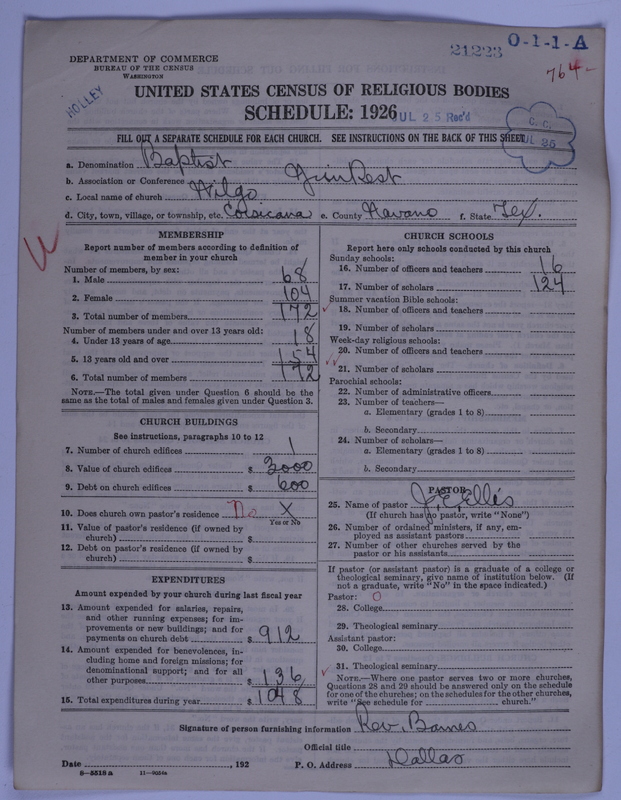 21223 O-1-1-A
764-
DEPARTMENT OF COMMERCE
BUREAU OF THE CENSUS
WASHINGTON
HOLLEY
UNITED STATES CENSUS OF RELIGIOUS BODIES
SCHEDULE: 1926
JUL 25 Rec'd
C. C.
JUL 26
FILL OUT A SEPARATE SCHEDULE FOR EACH CHURCH. SEE INSTRUCTIONS ON THE BACK OF THIS SHEET
a. Denomination Baptist
b. Association or Conference Rest
c. Local name of church Wilgo
d. City, town, village, or township, etc. Corsicana e. County Navano f. State Tex.
MEMBERSHIP
Report number of members according to definition of
member in your church
Number of members, by sex:
1. Male 68
2. Female 104
3. Total number of members 172
Number of members under and over 13 years old:
4. Under 13 years of age 18
5. 13 years old and over 154
6. Total number of members 172
NOTE.—The total given under Question 6 should be the
same as the total of males and females given under Question 3.
CHURCH BUILDINGS
See instructions, paragraphs 10 to 12
7. Number of church edifices 1
8. Value of church edifices $ 3000
9. Debt on church edifices $ 600
10. Does church own pastor's residence No X
Yes or No
11. Value of pastor's residence (if owned by
church) $
12. Debt on pastor's residence (if owned by
church) $
EXPENDITURES
Amount expended by your church during last fiscal year
13. Amount expended for salaries, repairs,
and other running expenses; for im-
provements or new buildings; and for
payments on church debt $ 912
14. Amount expended for benevolences, in-
cluding home and foreign missions; for
denominational support; and for all
other purposes $ 136
15. Total expenditures during year $ 1048
CHURCH SCHOOLS
Report here only schools conducted by this church
Sunday schools:
16. Number of officers and teachers 16
17. Number of scholars 124
Summer vacation Bible schools:
18. Number of officers and teachers
19. Number of scholars
Week-day religious schools:
20. Number of officers and teachers
21. Number of scholars
Parochial schools:
22. Number of administrative officers
23. Number of teachers—
a. Elementary (grades 1 to 8)
b. Secondary
24. Number of scholars—
a. Elementary (grades 1 to 8)
b. Secondary
PASTOR
25. Name of pastor J. E. Ellis
(If church has no pastor, write "None")
26. Number of ordained ministers, if any, em-
ployed as assistant pastors
27. Number of other churches served by the
pastor or his assistants
If pastor (or assistant pastor) is a graduate of a college or
theological seminary, give name of institution below. (If
not a graduate, write "No" in the space indicated.)
Pastor: O
28. College
29. Theological seminary
Assistant pastor:
30. College
31. Theological seminary
NOTE.—Where one pastor serves two or more churches,
Questions 28 and 29 should be answered only on the schedule
for one of the churches; on the schedules for the other churches,
write "See schedule for church."
Signature of person furnishing information Rev. Barnes
Official title
Date , 192 P. O. Address Dallas
8—5518 a 11—9054a